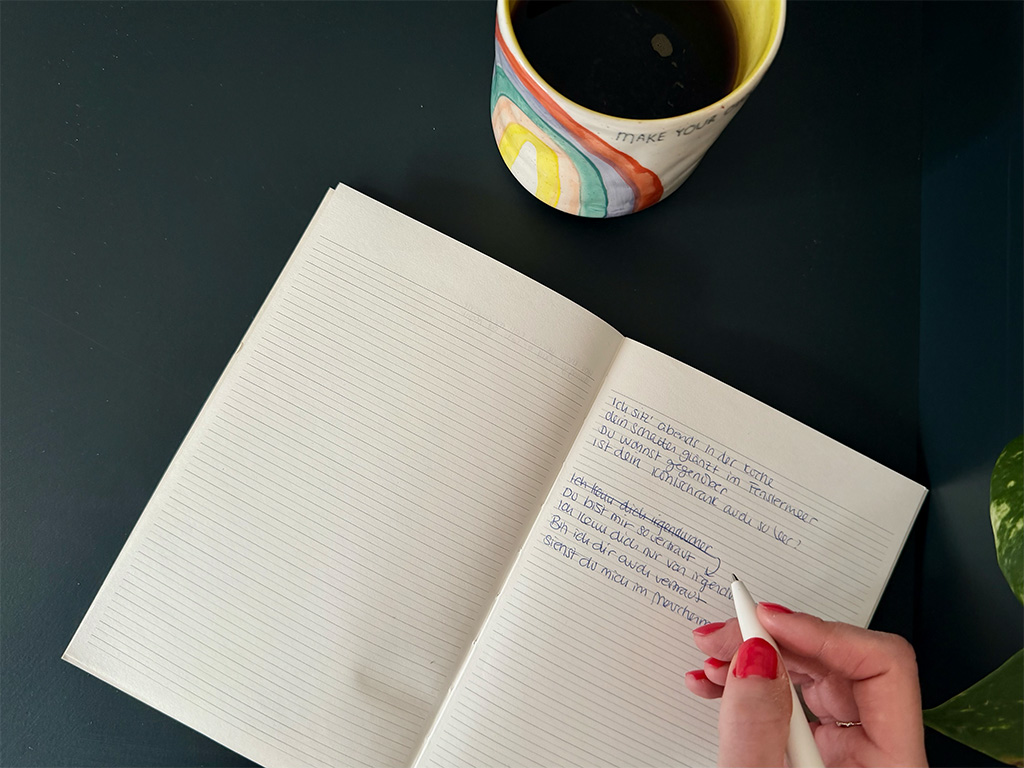 MAKE YOUR
Ich sitz' abends in der Küche
dein Schatten glänzt im Fenstermeer
Du wohnst gegenüber
ist dein Kühlschrank auch so leer?
Ich kenn dich irgendwoher
Du bist mir so vertraut
Ich kenn dich nur von irgendw
Bin ich dir auch vertraut
siehst du mich im